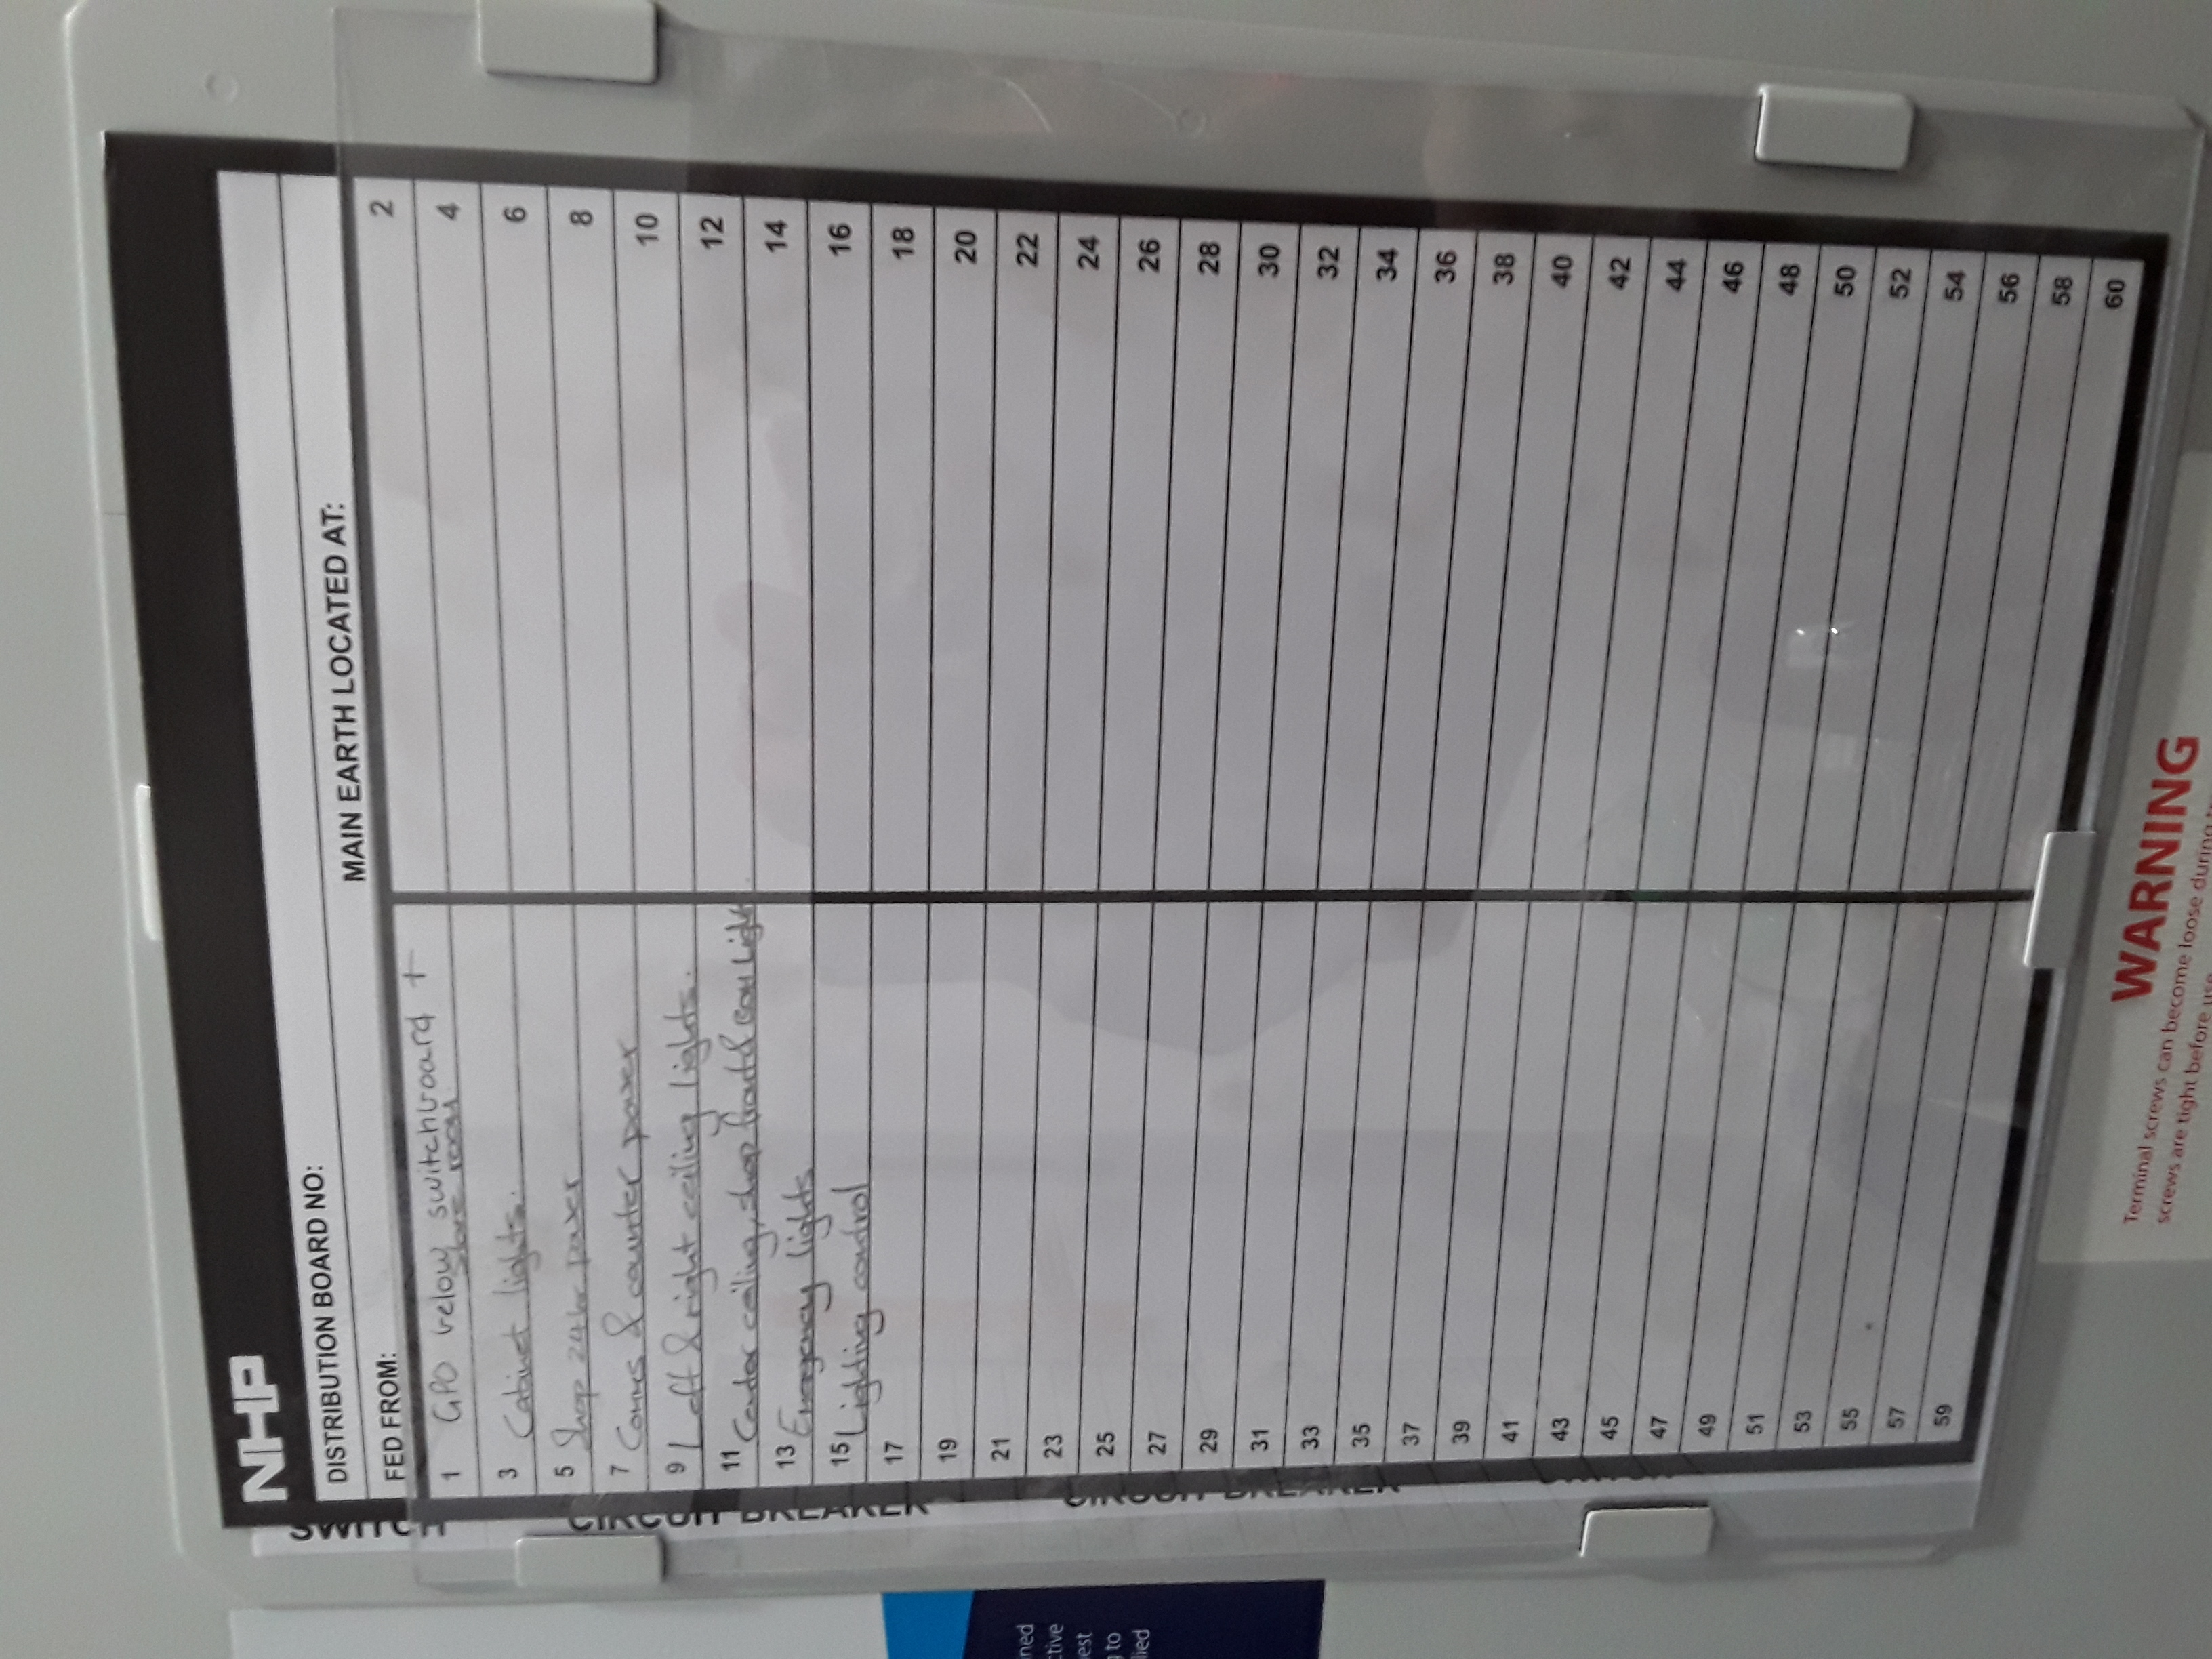 NHP
DISTRIBUTION BOARD NO:
FED FROM:
MAIN EARTH LOCATED AT:
1 GPO velow switchboard +
store room
2
3 Cabinet lights.
4
5 Shop 24hr power
6
7 Coms & counter power
8
9 Left & right ceiling lights.
10
11 Center ceiling, shop front &
12
13 Emergency lights
14
15 Lighting control
16
17 18
19 20
21 22
23 24
25 26
27 28
29 30
31 32
33 34
35 36
37 38
39 40
41 42
43 44
45 46
47 48
49 50
51 52
53 54
55 56
57 58
59 60
SWITCH
CIRCUIT BREAKER
CIRCUIT BREAKER
SWITCH
WARNING
Terminal screws can become loose during
screws are tight before use